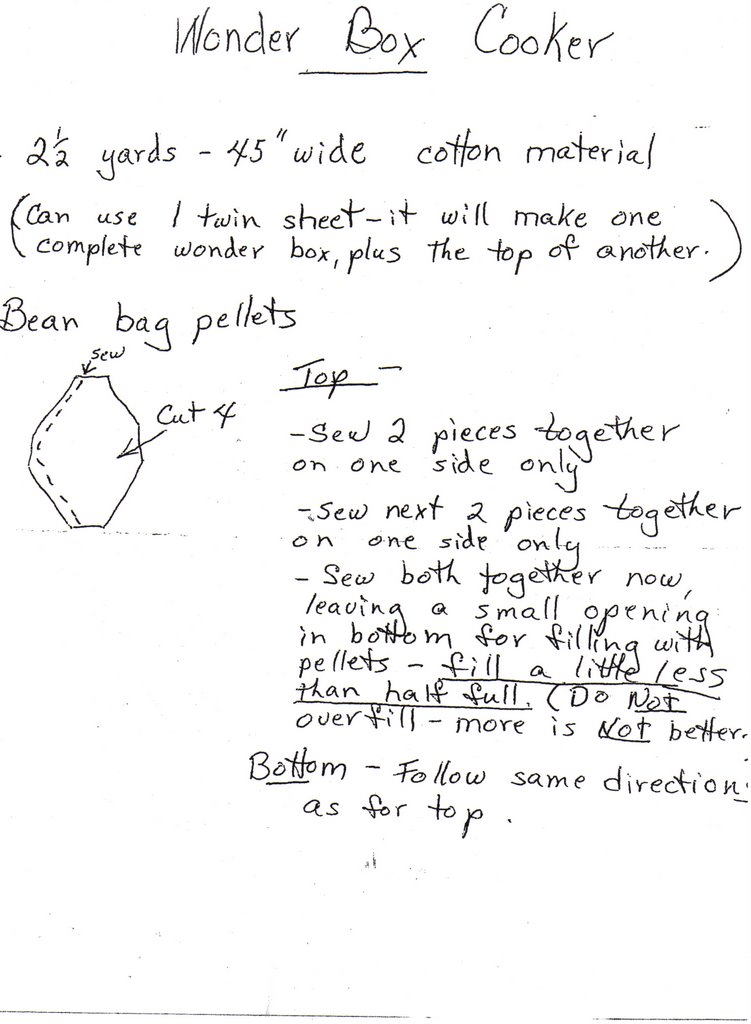 Wonder Box Cooker
- 2½ yards - 45" wide cotton material
(Can use 1 twin sheet - it will make one
complete wonder box, plus the top of another.)
Bean bag pellets
sew
Cut 4
Top -
- Sew 2 pieces together
on one side only
- Sew next 2 pieces together
on one side only
- Sew both together now,
leaving a small opening
in bottom for filling with
pellets - fill a little less
than half full. (Do Not
over fill - more is Not better.
Bottom - Follow same direction
as for top.